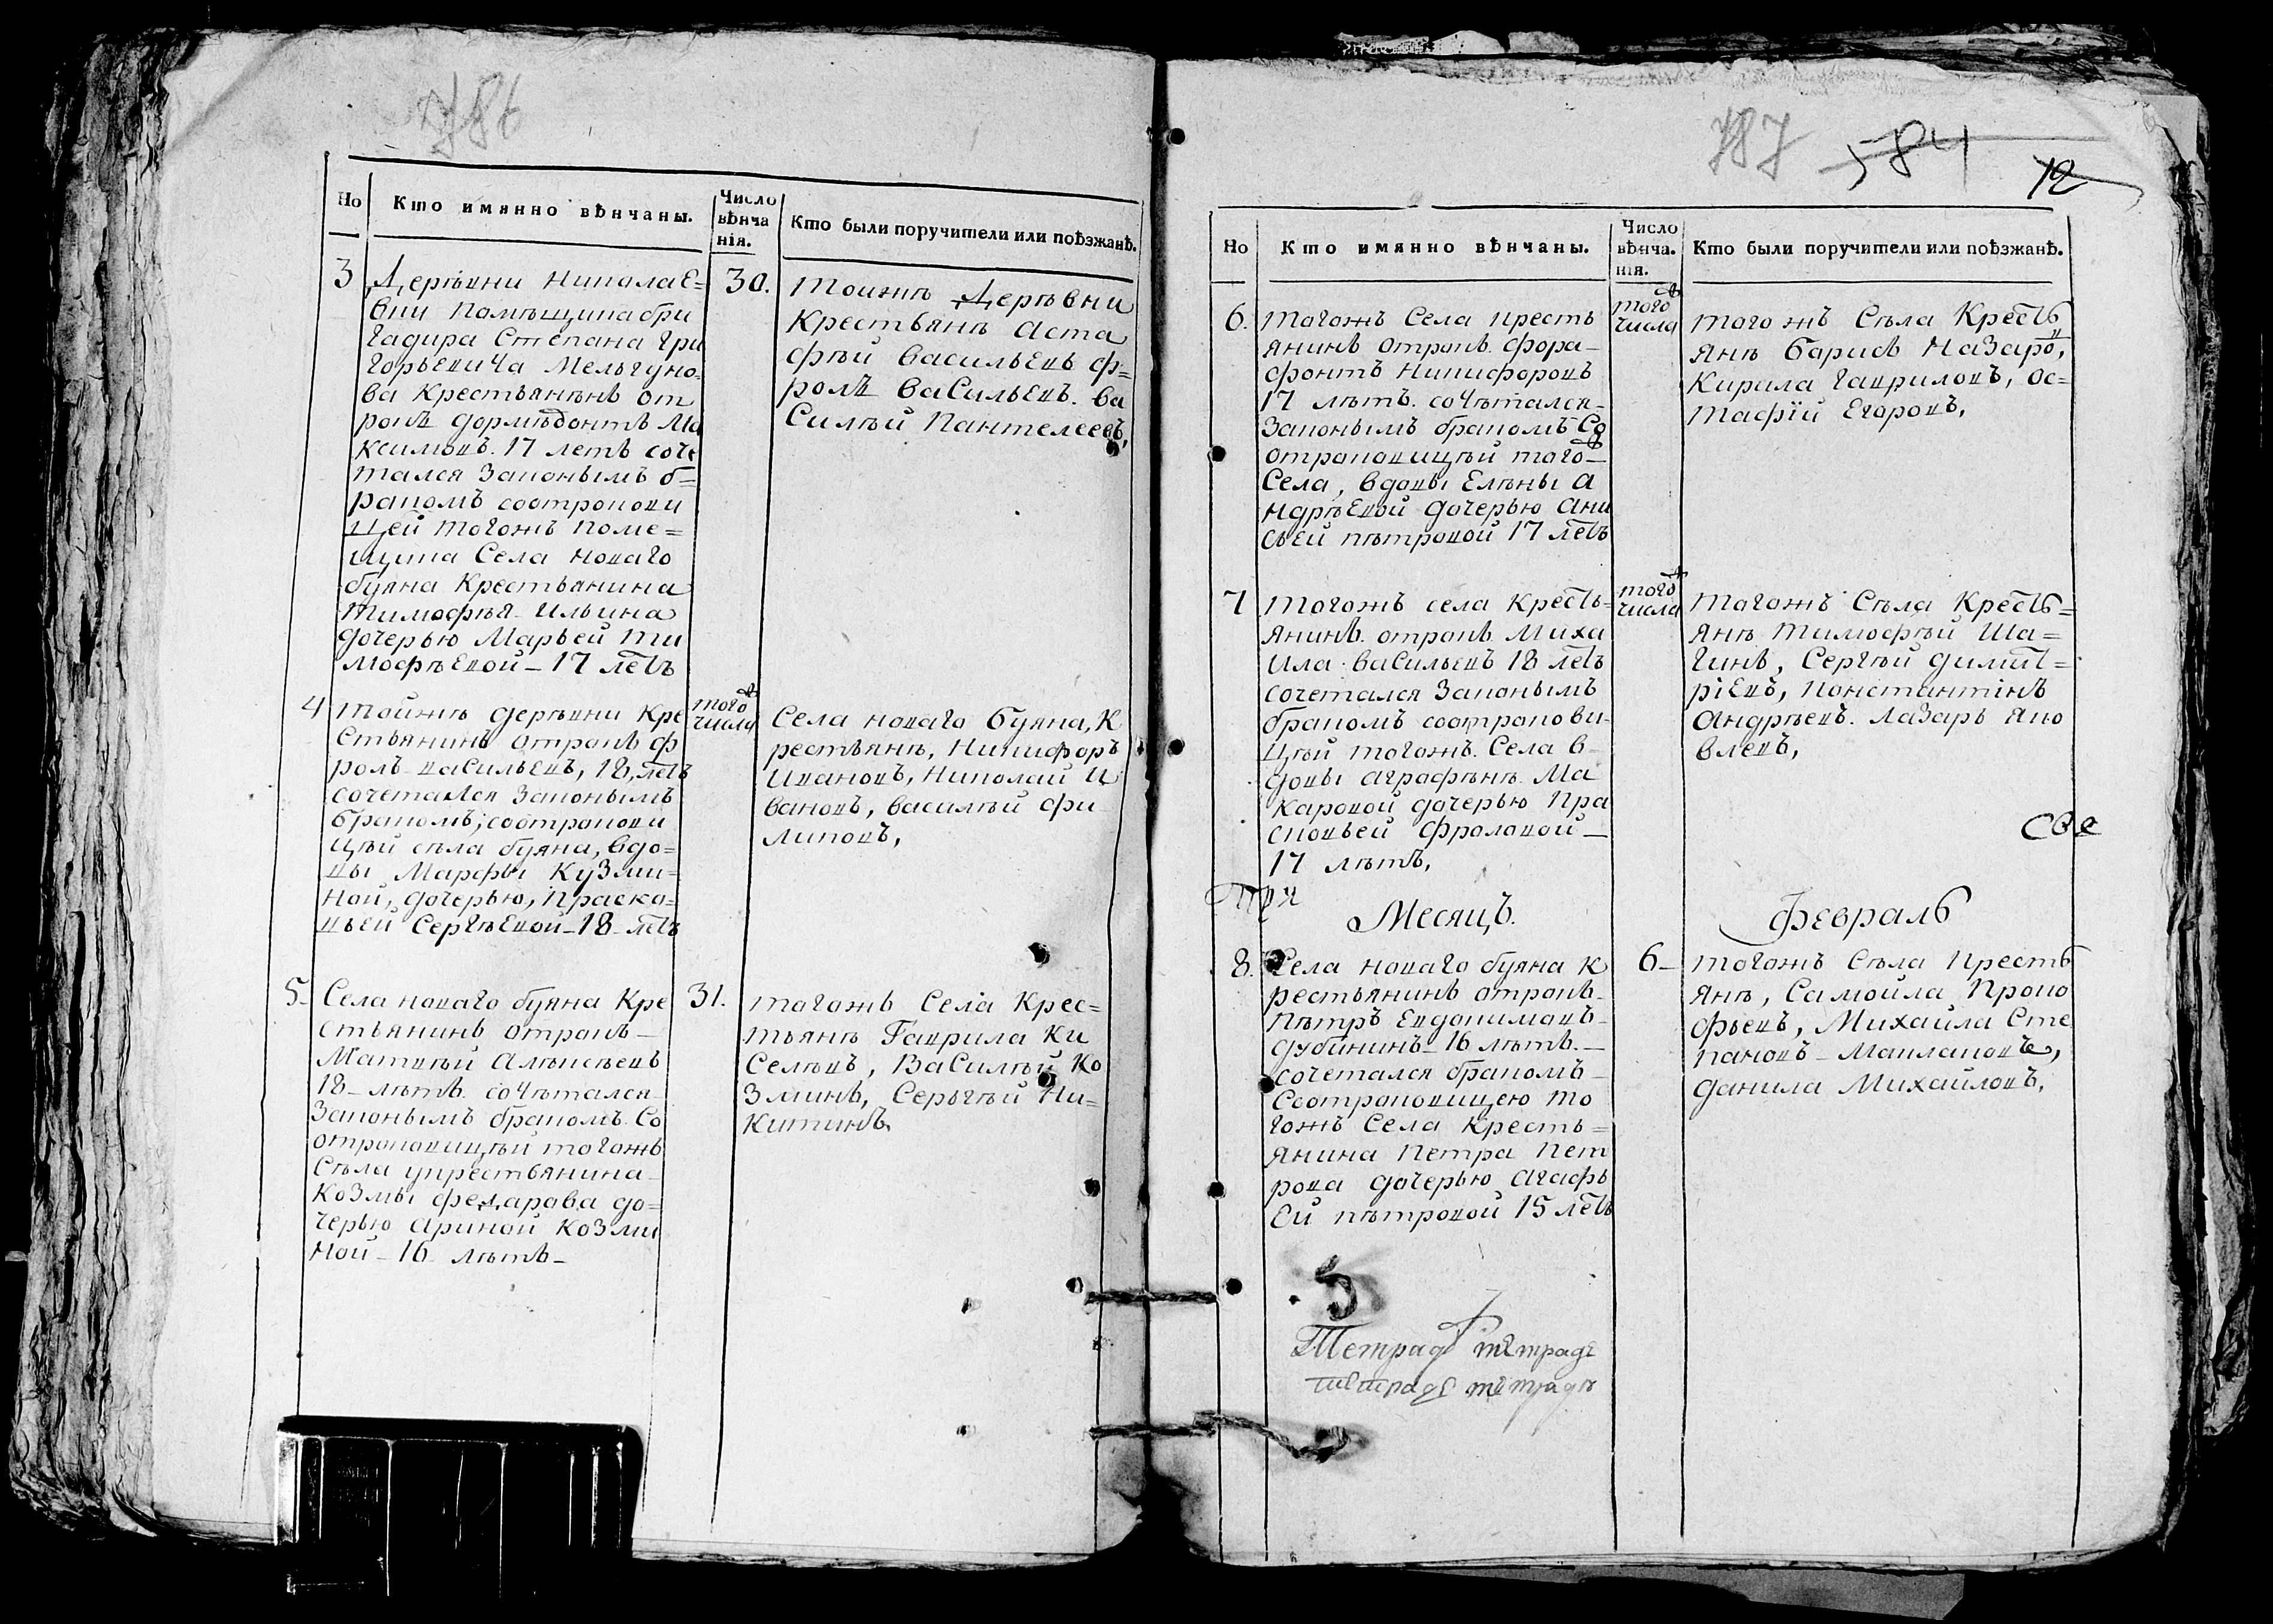 786
Но
Кто имянно вѣнчаны.
Число
вѣнча
нія.
Кто были поручители или поѣзжанѣ.
3
Деревни Николае=
вки помѣщика бри
гадира Степана Гри
горьевича Мельгуно=
ва Крестьянѣнъ от
рокъ дормѣдонтъ Ма
ксимовъ. 17 летъ соче
тался Законымъ б=
ракомъ соотрокови
цей тогожъ поме=
щика Села новаго
буяна Крестьянина
тимофѣя Ильина
дочерью Марьей ти
мофѣевой – 17 летъ
30.
тоижѣ Деревни
Крестьянѣ Аста
фѣй васильевъ ф=
ролъ васильевъ. ва
силѣй Пантелеевъ,
4
тойжѣ деревни Кре
стьянинъ отрокъ ф
ролъ васильевъ, 18, летъ
сочетался Законымъ
бракомъ, соотрокови
цѣй села буяна, вдо=
вы Марфы Кузми=
ной, дочерью, Праско=
вьей Сергѣевой – 18 – летъ
того
числа
Села новаго буяна, К
рестьянѣ, Никифоръ
Ивановъ, Николай И
вановъ, василѣй фи
липовъ,
5
Села новаго буяна Кре
стьянинъ отрокъ –
Матвѣй Алѣксѣевъ
18 – лѣтъ. сочѣтался
Законымъ бракомъ. Со
отроковицѣй тогожъ
Сѣла укрестьянина
Козмы федарова до=
черью Ариной Козми
ной – 16 лѣтъ –
31.
тогожъ Села Крес=
тьянѣ Гаврила Ки
селѣвъ, Василѣй Ко
зминъ, Серьгѣй Ни=
китинъ
787
584
12
Но
Кто имянно вѣнчаны.
Число
вѣнча.
нія.
Кто были поручители или поѣзжанѣ.
6.
тогожъ Села кресть
янинъ отрокъ фора–
фонтъ Никифоровъ
17 лѣтъ. сочѣтался–
Законымъ бракомъ Со
отроковицѣй того–
Села, вдовы Елѣны А
ндрѣевой дочерью Ани
сьей пѣтровой 17 летъ
того
числа
того жъ Сѣла Кресть
янѣ Барисъ Назаров,
Кирила гавриловъ, Ос=
тафій Егоровъ,
7
тогожъ села Кресть=
янинъ отрокъ Миха
ила васильевъ 18 летъ
сочетался Законымъ
бракомъ соотрокови–
цѣй тогожъ Села в–
довы аграфѣнѣ Ма
каровой дочерью Пра
сковьей фроловой –
17 лѣтъ,
того
числа
тогожъ Сѣла Кресть=
янѣ тимофѣй Ша=
гинъ, Сергѣй димит=
ріевъ, Константінъ
Андрѣевъ. лазарь Яко
влевъ,
Месяцъ.
февраль
8.
Села новаго буяна К
рестьянинъ отрокъ–
Пѣтръ Евдокимовъ–
дубининъ – 16 лѣтъ. –
сочетался бракомъ–
Соотроковицею то
гожъ Села Кресть=
янина Петра Пет
рова дочерью Агафь
ей пѣтровой 15 летъ
6 –
тогожъ Сѣла Кресть
янѣ, Самойла Проко
фьевъ, Михайла Сте
пановъ – Маклаковъ,
данила Михайловъ,
Тетрад тетрадь